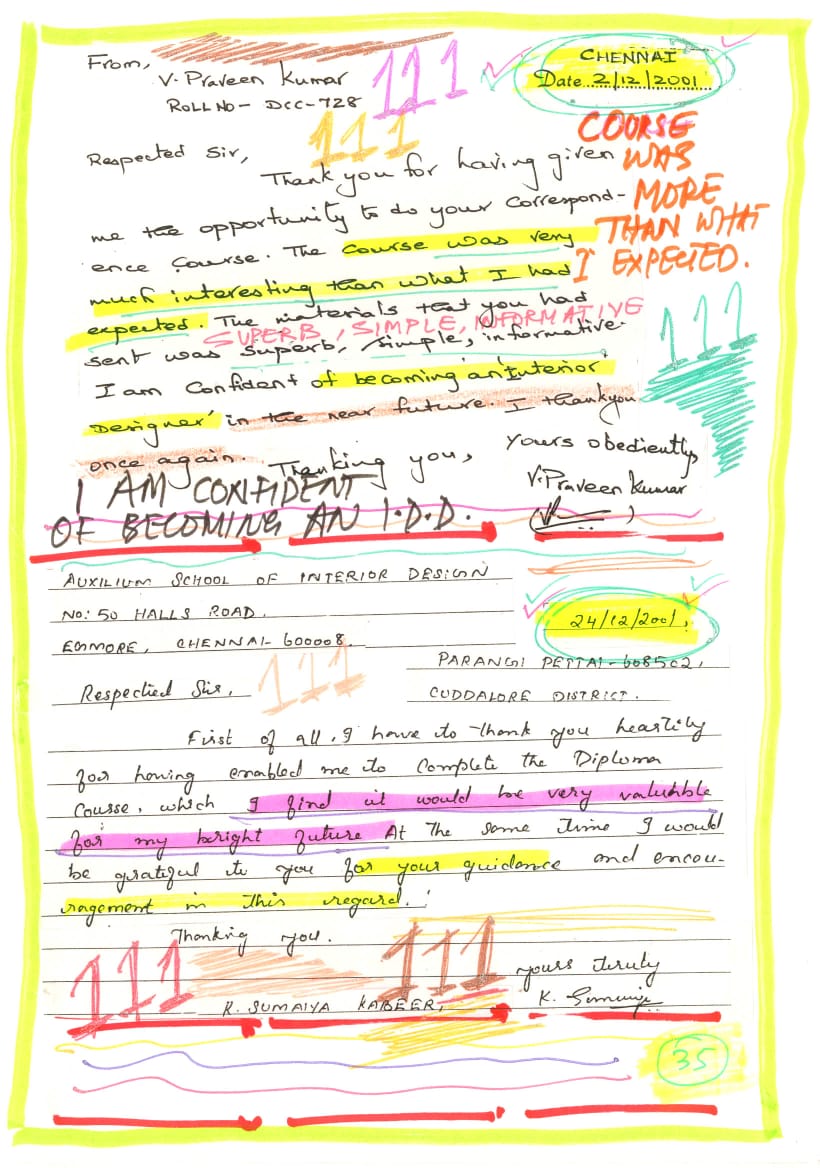 From,
V. Praveen Kumar
ROLL NO - DCC-728
111
CHENNAI
Date 2/12/2001
111
COURSE
WAS
MORE
THAN WHAT
I EXPECTED.
Respected Sir,
Thank you for having given
me the opportunity to do your Correspond-
ence Course. The Course was very
much interesting than what I had
expected. The materials that you had
SUPERB, SIMPLE, INFORMATIVE
sent was Superb, simple, informative.
111
I am Confident of becoming an 'Interior
Designer' in the near future. I thankyou
once again. Thanking you,
Yours obediently,
V. Praveen Kumar
I AM CONFIDENT
OF BECOMING AN I.D.D.
AUXILIUM SCHOOL OF INTERIOR DESIGN
NO: 50 HALLS ROAD,
EGMORE, CHENNAI- 600008.
24/12/2001,
PARANGI PETTAI-608502,
CUDDALORE DISTRICT.
Respectied Sir,
111
First of all, I have to thank you heartily
for having enabled me to complete the Diploma
Course, which I find it would be very valuable
for my bright future At the same time I would
be grateful to you for your guidance and encou-
ragement in this regard.
Thanking you.
111
111
yours truly
K. SUMAIYA KABEER,
K. Sumaiya
35